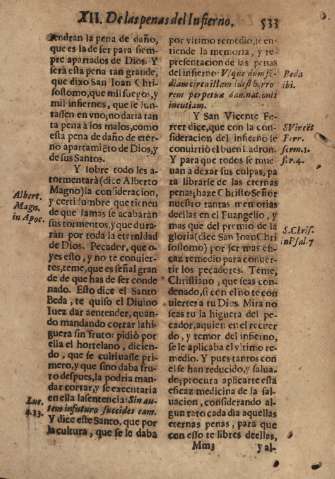 XII. De las penas del Infierno. 533
tendran la pena de daño,
que es la de ser para siem-
pre apartados de Dios. Y
serà esta pena tan grande,
que dixo San Ioan Chri-
sostomo, que mil fuegos, y
mil infiernos, que se jun-
tassen en vno, no daria tan
ta pena à los malos, como
esta pena de daño de eter-
no apartamiẽto de Dios, y
de sus Santos.
Y sobre todo les a-
tormentarà (dize Alberto
Magno) la consideracion,
y certidumbre que tienen
de que jamas se acabaràn
sus tormentos, y que dura-
ràn por toda la eternidad
de Dios. Pecador, que o-
yes esto, y no te conuier-
tes, teme, que es señal gran
de de que has de ser conde
nado. Esto dize el Santo
Beda, te quiso el Diuino
Iuez dar à entender, quan-
do mandando cortar la hi-
guera sin fruto: pidiò por
ella el hortelano, dicien-
do, que se cultiuasse pri-
mero, y que sino daba fru-
to despues, la podria man-
dar cortar, y se executaria
en ella la sentencia: Sin au-
tem in futuro succides eam.
Y dize este Santo, que por
la cultura, que se le daba
Albert.
Magn.
in Apoc.
Luc.
c.13.
por vltimo remedio, se en-
tiende la memoria, y re-
presentacion de las penas
del infierno:
rem perpetuæ damnationis
incutiam.
Y San Vicente Fe-
rrer dize, que con la con-
sideracion del infierno se
conuirtiò el buen ladron.
Y para que todos se mue-
uan a dexar sus culpas, pa
ra librarse de las eternas
penas, haze Christo Señor
nuestro tantas memorias
dellas en el Euangelio, y
mas que del premio de la
gloria (dize San Ioan Chri
sostomo) por ser mas efi-
caz remedio para conuer-
tir los pecadores. Teme,
Christiano, que seas con-
denado, si con esto no te con
uiertes à tu Dios. Mira no
seas tu la higuera del pe-
cador, à quien en el recuer
do, y temor del infierno,
se le aplicaba el vltimo re-
medio. Y pues tantos con
el se han reducido, y salua-
do, procura aplicarte esta
eficaz medicina de la sal-
uacion, considerando al-
gun rato cada dia aquellas
eternas penas, para que
con esso te libres dellas,
Beda
ibi.
S. Vincẽt
Ferr.
serm.1.
S. Chris.
in Psal. 7
Mm3 y al-